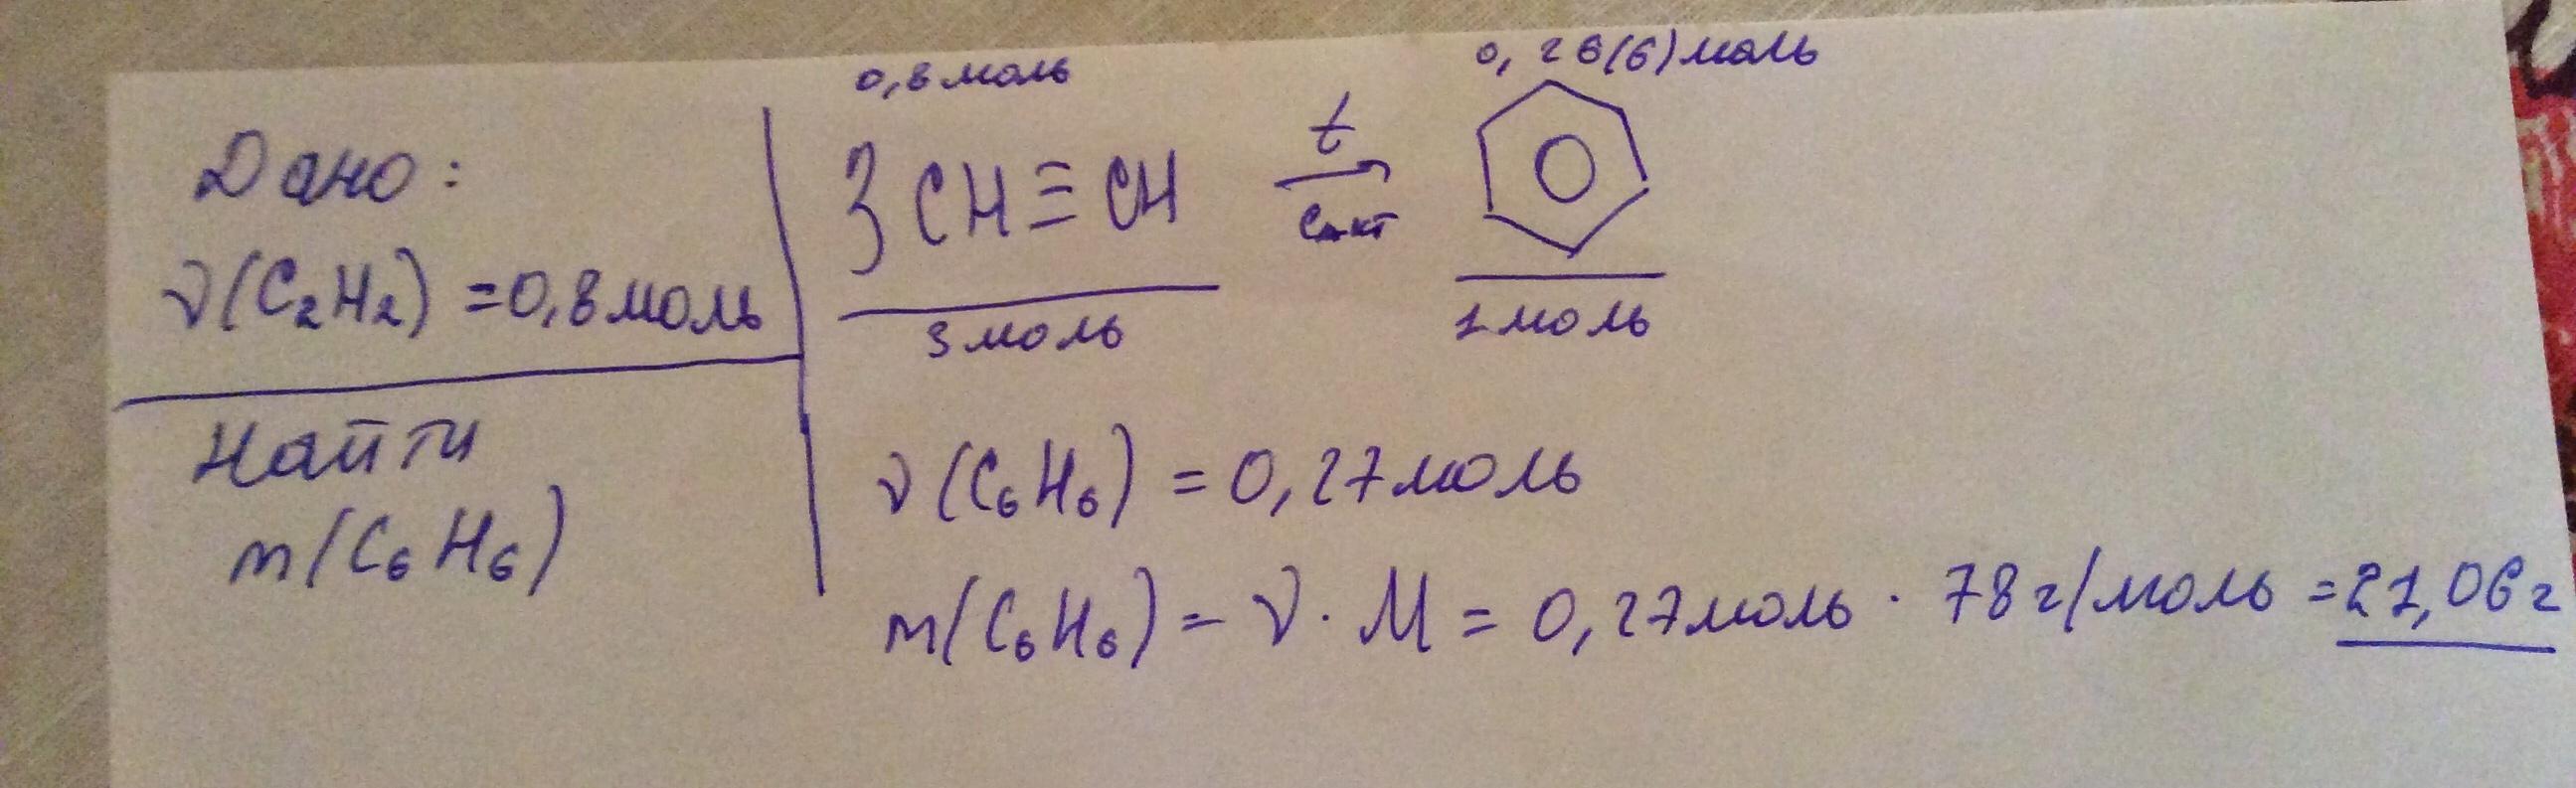 Дано:
ν(C₂H₂) = 0,8 моль
Найти
m(C₆H₆)
0,8 моль
0,26(6) моль
3CH≡CH
t
Cакт
3 моль
1 моль
ν(C₆H₆) = 0,27 моль
m(C₆H₆) = ν · M = 0,27 моль · 78 г/моль = 21,06 г